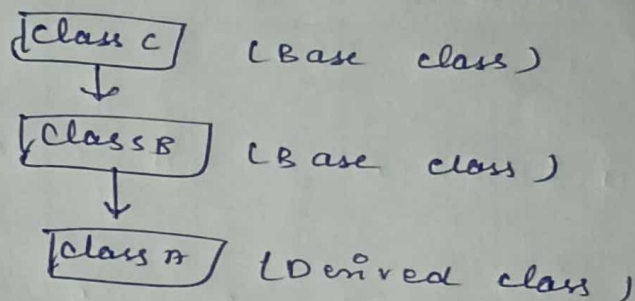 Class C (Base class)
Class B (Base class)
Class A (Derived class)